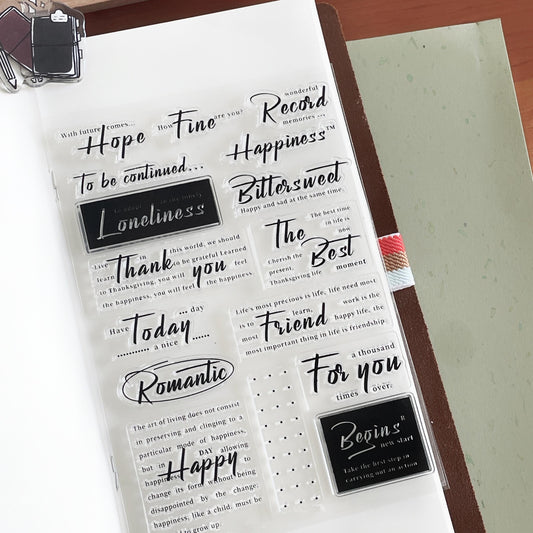 With future comes...
Hope
How are you?
Fine
wonderful
Record
memories ...
Happiness™
To be continued...
Bittersweet
Happy and sad at the same time.
in the lonely
Loneliness
Live in this world, we should
learn to be grateful Learned
Thank you
to Thanksgiving, you will feel
the happiness, you will feel the happiness
The best time
in life is
now
The Best
Cherish the
present,
Thanksgiving life moment
Have ... day
Today
a nice
Life's most precious is life, life need most
is to learn, work is the
Friend
most happy life, the
most important thing in life is friendship.
Romantic
a thousand
For you
times over.
The art of living does not consist
in preserving and clinging to a
particular mode of happiness,
but in DAY allowing
Happy
happiness to
change its form without being
disappointed by the change;
happiness, like a child, must be
to grow up.
Begins R
new start
Take the first step in
carrying out an action